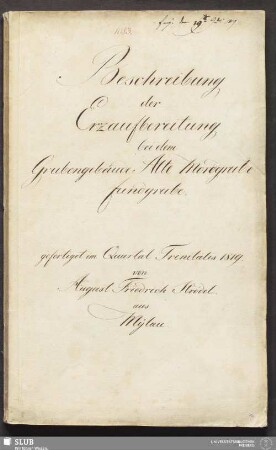 Beschreibung
der
Erzaufbereitung
bei dem
Grubengebäude Alte Mordgrube
fundgrube
gefertiget im Quartal Trinitatis 1819.
von
August Friedrich
aus
Mylau
SLUB